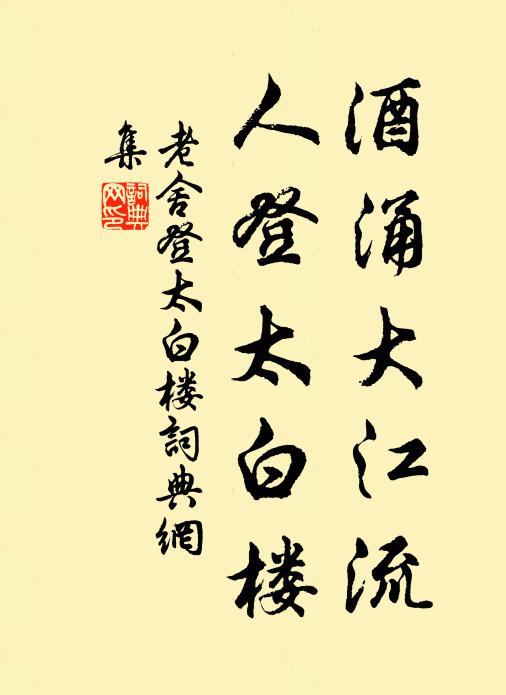 酒涌大江流
人登太白楼
老舍登太白楼詞典網
集
詞典网印